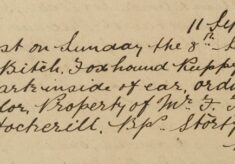 11 Sep
st on Sunday the 8th S
Bitch. Foxhound Puppy
ark inside of ear, ord
lor. Property of Mr. F.
Hockerill. Bp. Stortf